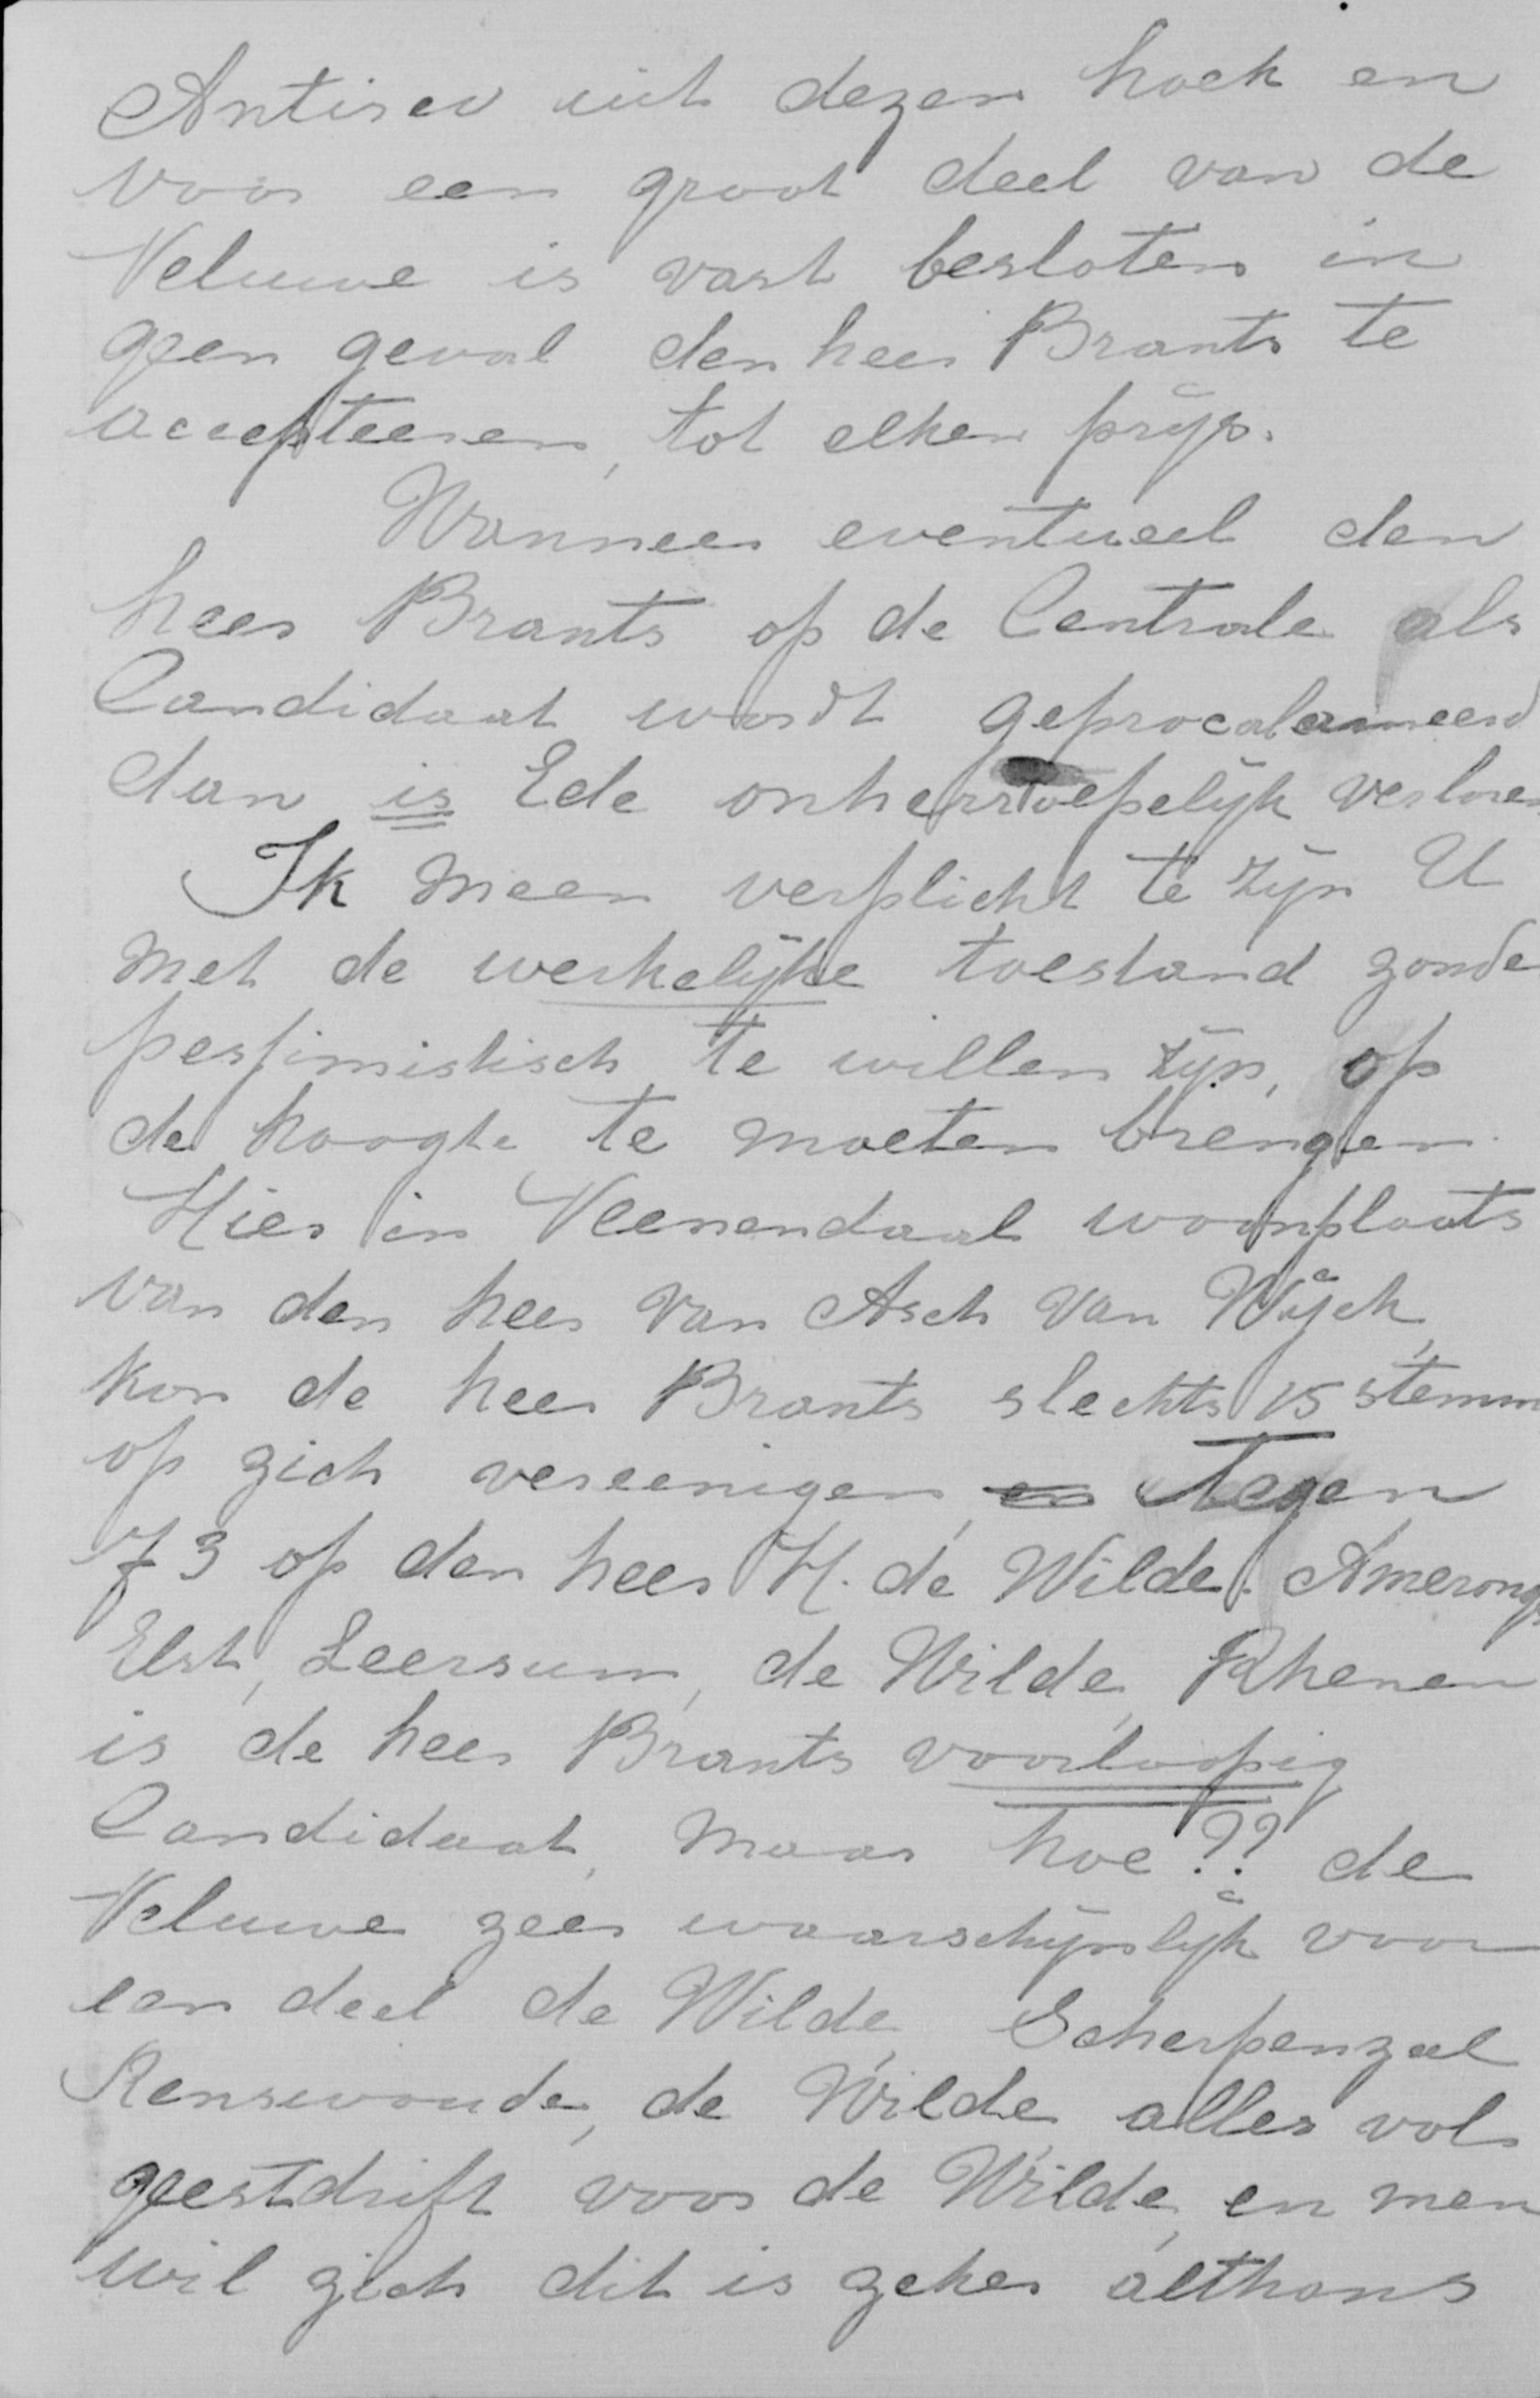 Antirev uit dezen hoek en
voor een groot deel van de
Veluwe is vast besloten in
geen geval den heer Brants te
accepteeren, tot elken prijs.
Wanneer eventueel den
heer Brants op de Centrale als
Candidaat wordt geprocalameerd
dan is Ede onherroepelijk verloren
Ik meen verplicht te zijn U
met de werkelijke toestand zonde
pessimistisch te willen zijn, op
de hoogte te moeten brengen.
Hier in Veenendaal woonplaats
van den heer van Asch van Wijck,
kon de heer Brants slechts 15 stemm
op zich vereenigen, en tegen
73 op den heer H. de Wilde. Amerong
Elst, Leersum, de Wilde, Rhenen
is de heer Brants voorloopig
Candidaat, maar hoe?? de
Veluwe zeer waarschijnlijk voor
een deel de Wilde, Scherpenzeel
Renswoude, de Wilde alles vol
geestdrift voor de Wilde, en men
wil zich dit is zeker althans